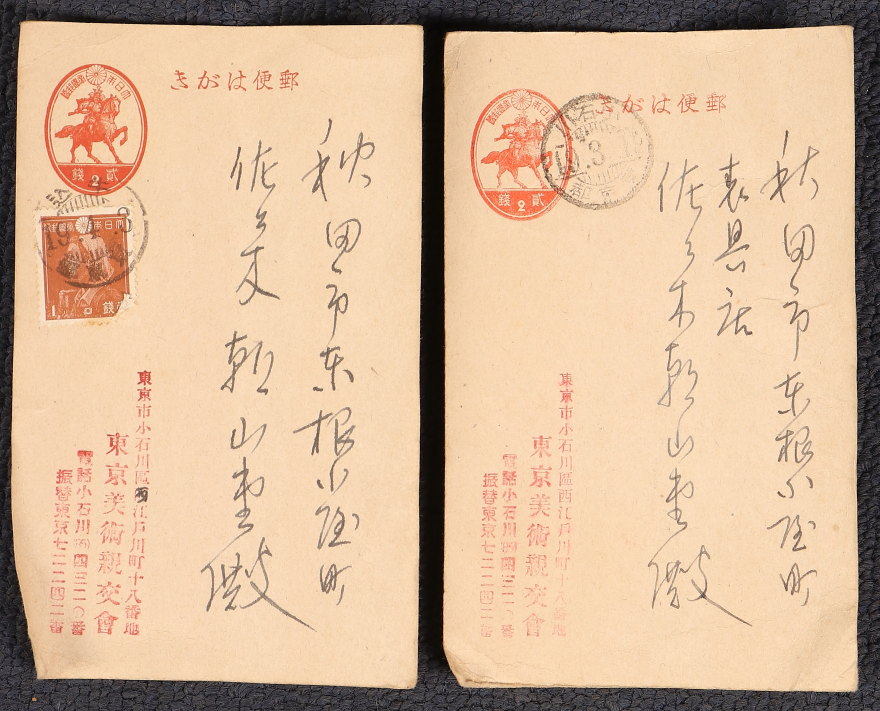 郵便はがき
大日本帝國郵便
貳錢
2
秋田市东根小屋町
佐々木朝山堂 殿
大日本帝國郵便
19
8
東京市小石川區西江戶川町十八番地
東京美術親交會
電話小石川
振替東京七二二四二番
郵便はがき
大日本帝國郵便
貳錢
2
小石川
3
東京
秋田市东根小屋町
表具店
佐々木朝山堂 殿
東京市小石川區西江戶川町十八番地
東京美術親交會
電話小石川
振替東京七二二四二番